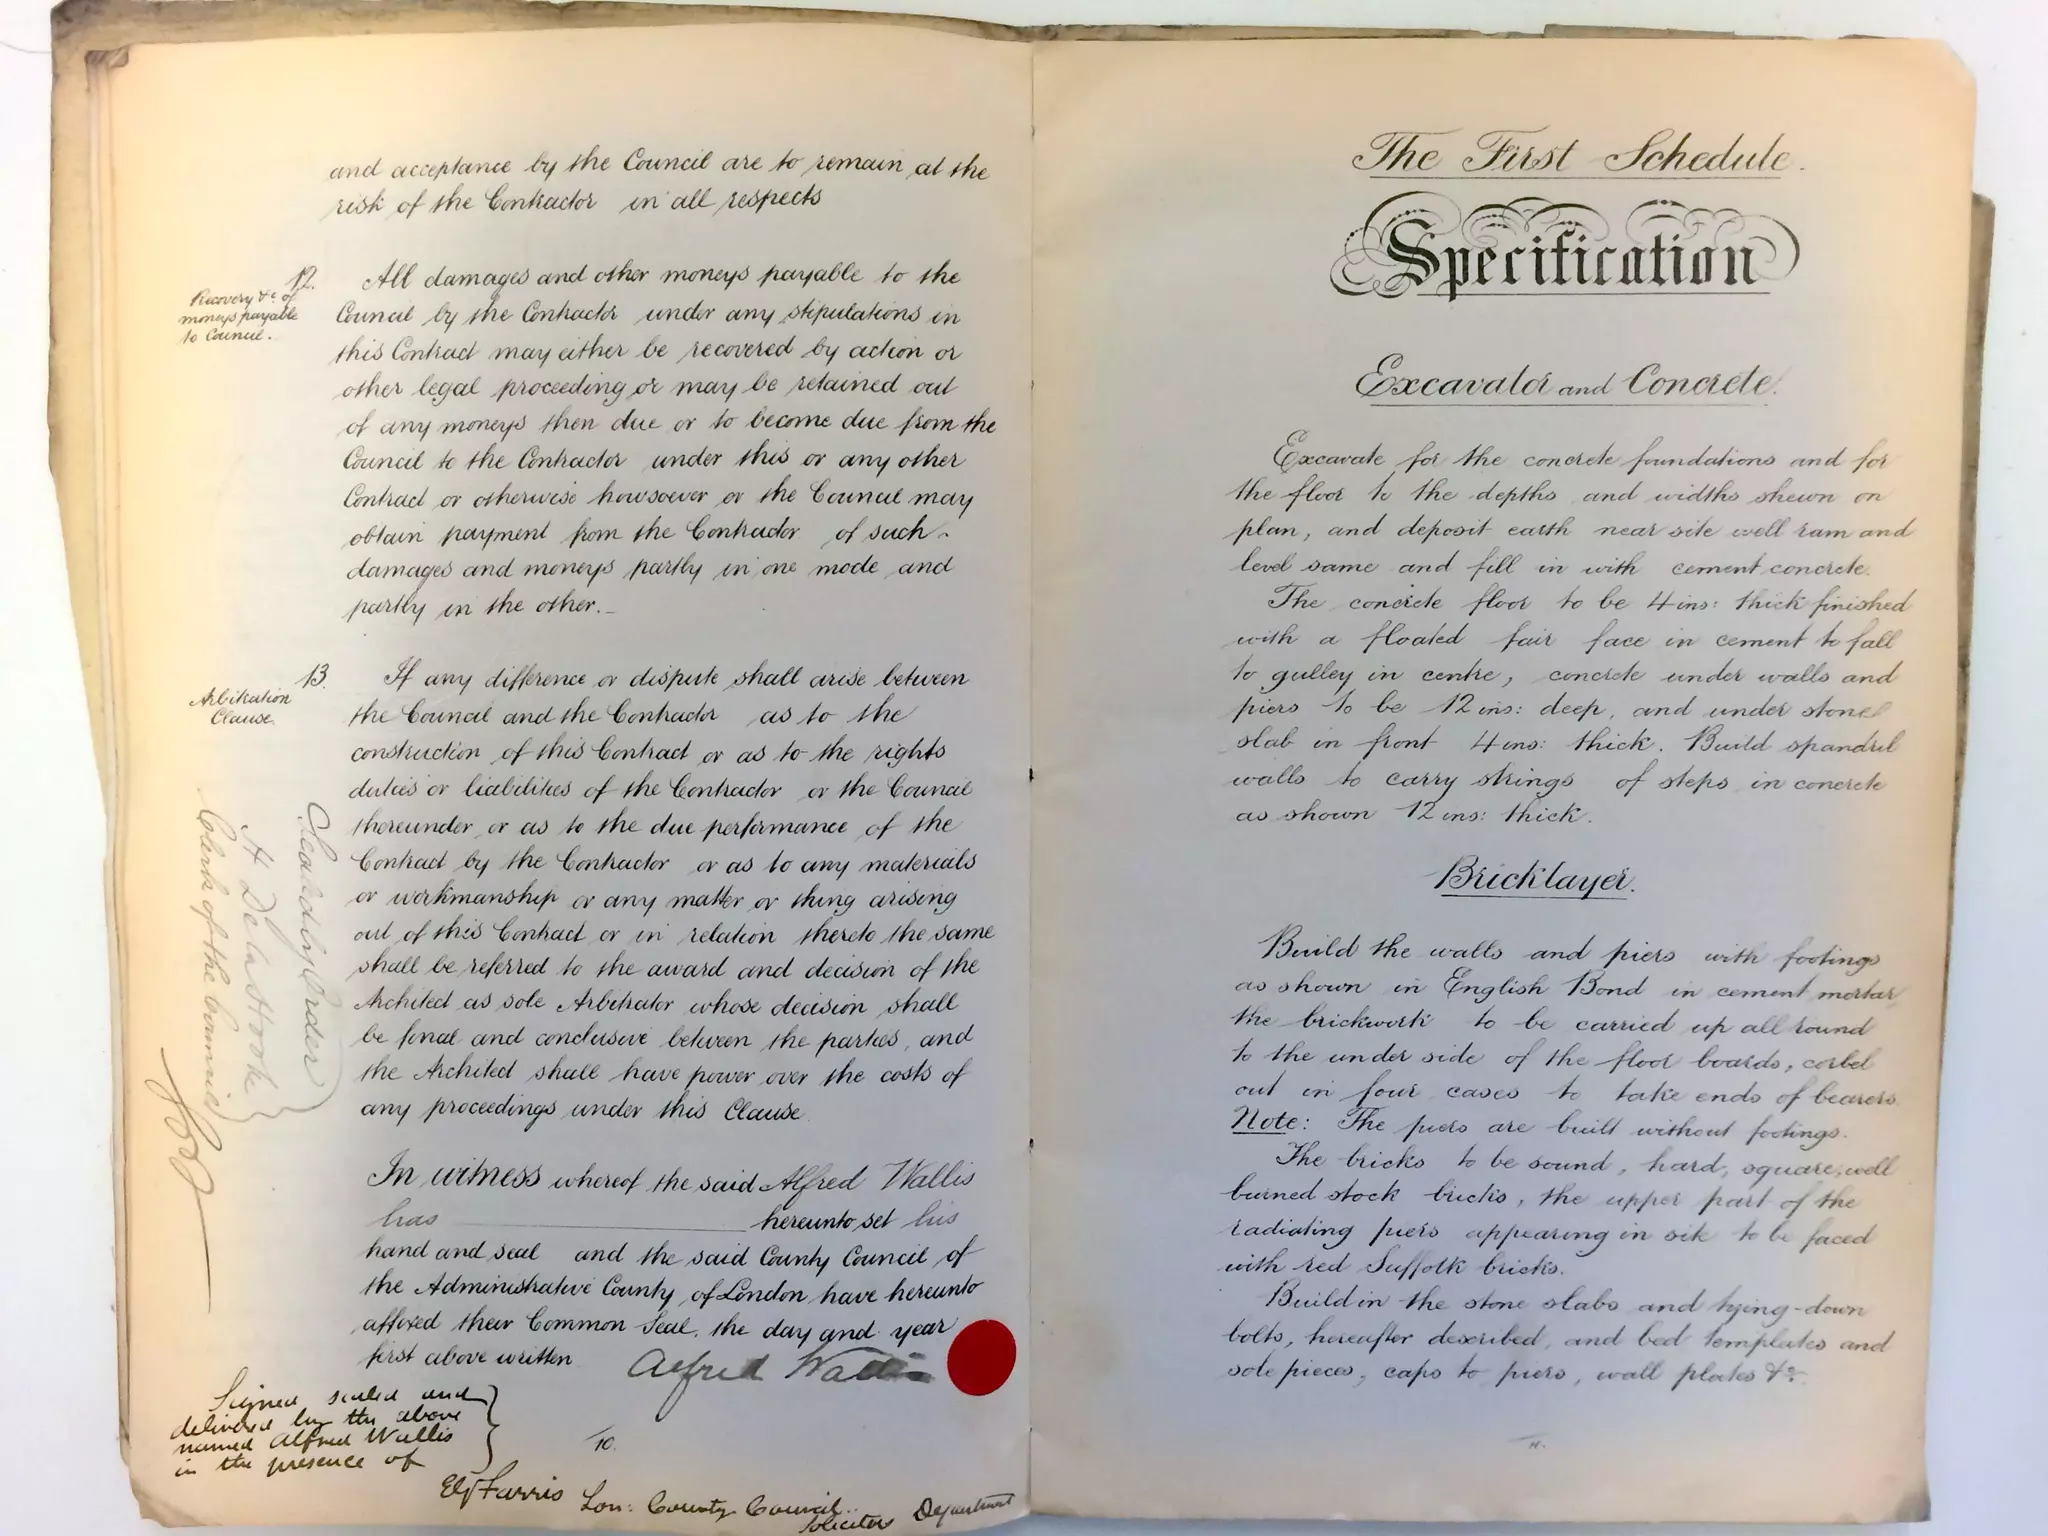 and acceptance by the Council are to remain at the
risk of the Contractor in all respects
12.
Recovery &c. of
moneys payable
to Council.
All damages and other moneys payable to the
Council by the Contractor under any stipulations in
this Contract may either be recovered by action or
other legal proceeding or may be retained out
of any moneys then due or to become due from the
Council to the Contractor under this or any other
Contract or otherwise howsoever or the Council may
obtain payment from the Contractor of such
damages and moneys partly in one mode and
partly in the other.
13.
Arbitration
Clause.
If any difference or dispute shall arise between
the Council and the Contractor as to the
construction of this Contract or as to the rights
duties or liabilities of the Contractor or the Council
thereunder or as to the due performance of the
Contract by the Contractor or as to any materials
or workmanship or any matter or thing arising
out of this Contract or in relation thereto the same
shall be referred to the award and decision of the
Architect as sole Arbitrator whose decision shall
be final and conclusive between the parties, and
the Architect shall have power over the costs of
any proceedings under this Clause.
Sealding Order
Clerk of the Council
In witness whereof the said Alfred Wallis
has hereunto set his
hand and seal and the said County Council of
the Administrative County of London have hereunto
affixed their Common Seal the day and year
first above written
Alfred Wallis
Signed sealed and
delivered by the above
named Alfred Wallis
in the presence of
10.
Farris Lon: County Council
Solicitors Department
The First Schedule.
Specification
Excavator and Concrete.
Excavate for the concrete foundations and for
the floor to the depths and widths shewn on
plan, and deposit earth near site well ram and
level same and fill in with cement concrete.
The concrete floor to be 4 ins: thick finished
with a floated fair face in cement to fall
to gulley in centre, concrete under walls and
piers to be 12 ins: deep, and under stone
slab in front 4 ins: thick. Build spandril
walls to carry strings of steps in concrete
as shown 12 ins: thick.
Bricklayer.
Build the walls and piers with footings
as shown in English Bond in cement mortar
the brickwork to be carried up all round
to the under side of the floor boards, corbel
out in four cases to take ends of bearers.
Note: The piers are built without footings.
The bricks to be sound, hard, square, well
burned stock bricks, the upper part of the
radiating piers appearing in site to be faced
with red Suffolk bricks.
Build in the stone slabs and tying-down
bolts, hereafter described, and bed templates and
sole pieces, caps to piers, wall plates &c.
11.